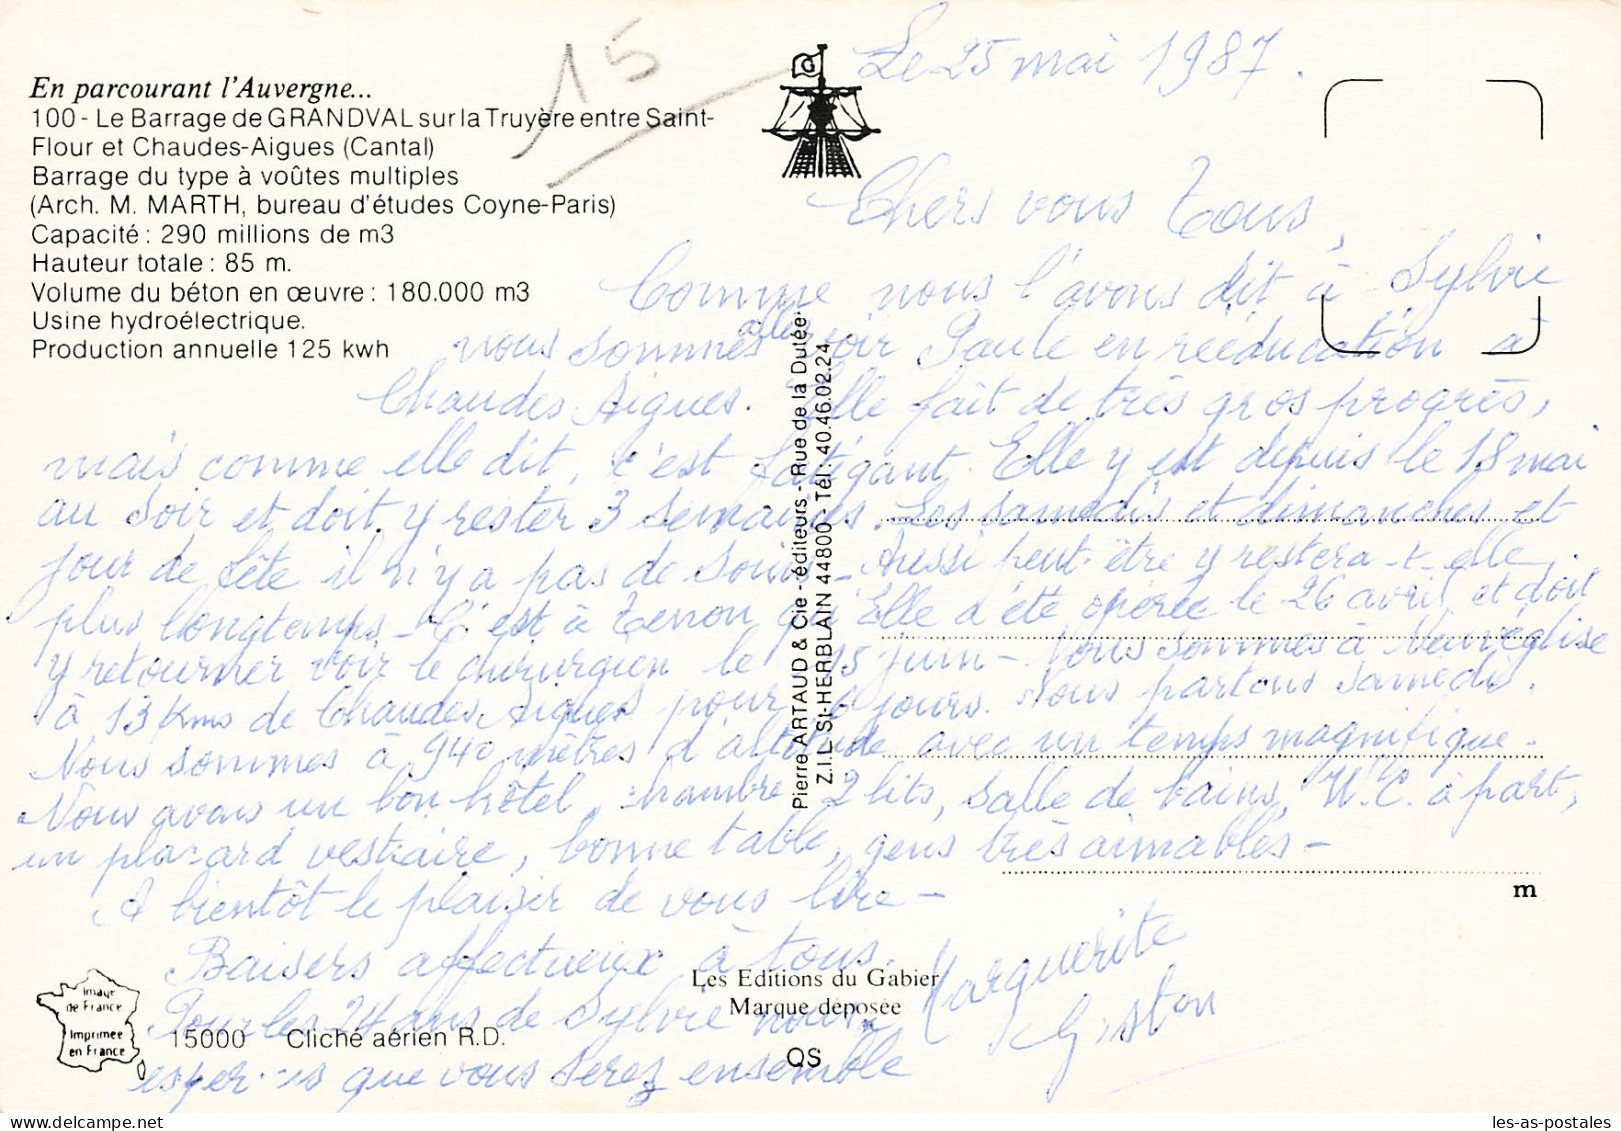 En parcourant l'Auvergne...
100 - Le Barrage de GRANDVAL sur la Truyère entre Saint-
Flour et Chaudes-Aigues (Cantal)
Barrage du type à voûtes multiples
(Arch. M. MARTH, bureau d'études Coyne-Paris)
Capacité : 290 millions de m3
Hauteur totale : 85 m.
Volume du béton en œuvre : 180.000 m3
Usine hydroélectrique.
Production annuelle 125 kwh
15
Le 25 mai 1987.
Chers vous Tous,
Comme nous l'avons dit à Sylvie
nous sommes allés voir Paule en rééducation à
Chaudes Aigues. Elle fait de très gros progrès,
mais comme elle dit, c'est fatigant. Elle y est depuis le 18 mai
au soir et doit y rester 3 semaines. Les samedis et dimanches et
jour de fête il n'y a pas de soins - Aussi peut-être y restera-t-elle
plus longtemps - C'est à Tenon qu'Elle a été opérée le 26 avril et doit
y retourner voir le chirurgien le 15 juin - Nous sommes à Neuvéglise
à 13 Kms de Chaudes Aigues pour 6 jours. Nous partons samedi.
Nous sommes à 940 mètres d'altitude avec un temps magnifique.
Nous avons un bon hôtel, chambre 2 lits, salle de bains, W.C. à part,
un placard vestiaire, bonne table, gens très aimables -
A bientôt le plaisir de vous lire -
Baisers affectueux à tous.
Pour les 24 ans de Sylvie nous
espérons que vous serez ensemble
Marguerite
Gaston
Pierre ARTAUD & Cie - éditeurs - Rue de la Dutée
Z.I.L. St-HERBLAIN 44800 - Tél : 40.46.02.24
m
Les Editions du Gabier
Marque déposée
QS
Image
de France
Imprimée
en France
15000 Cliché aérien R.D.
les-as-postales